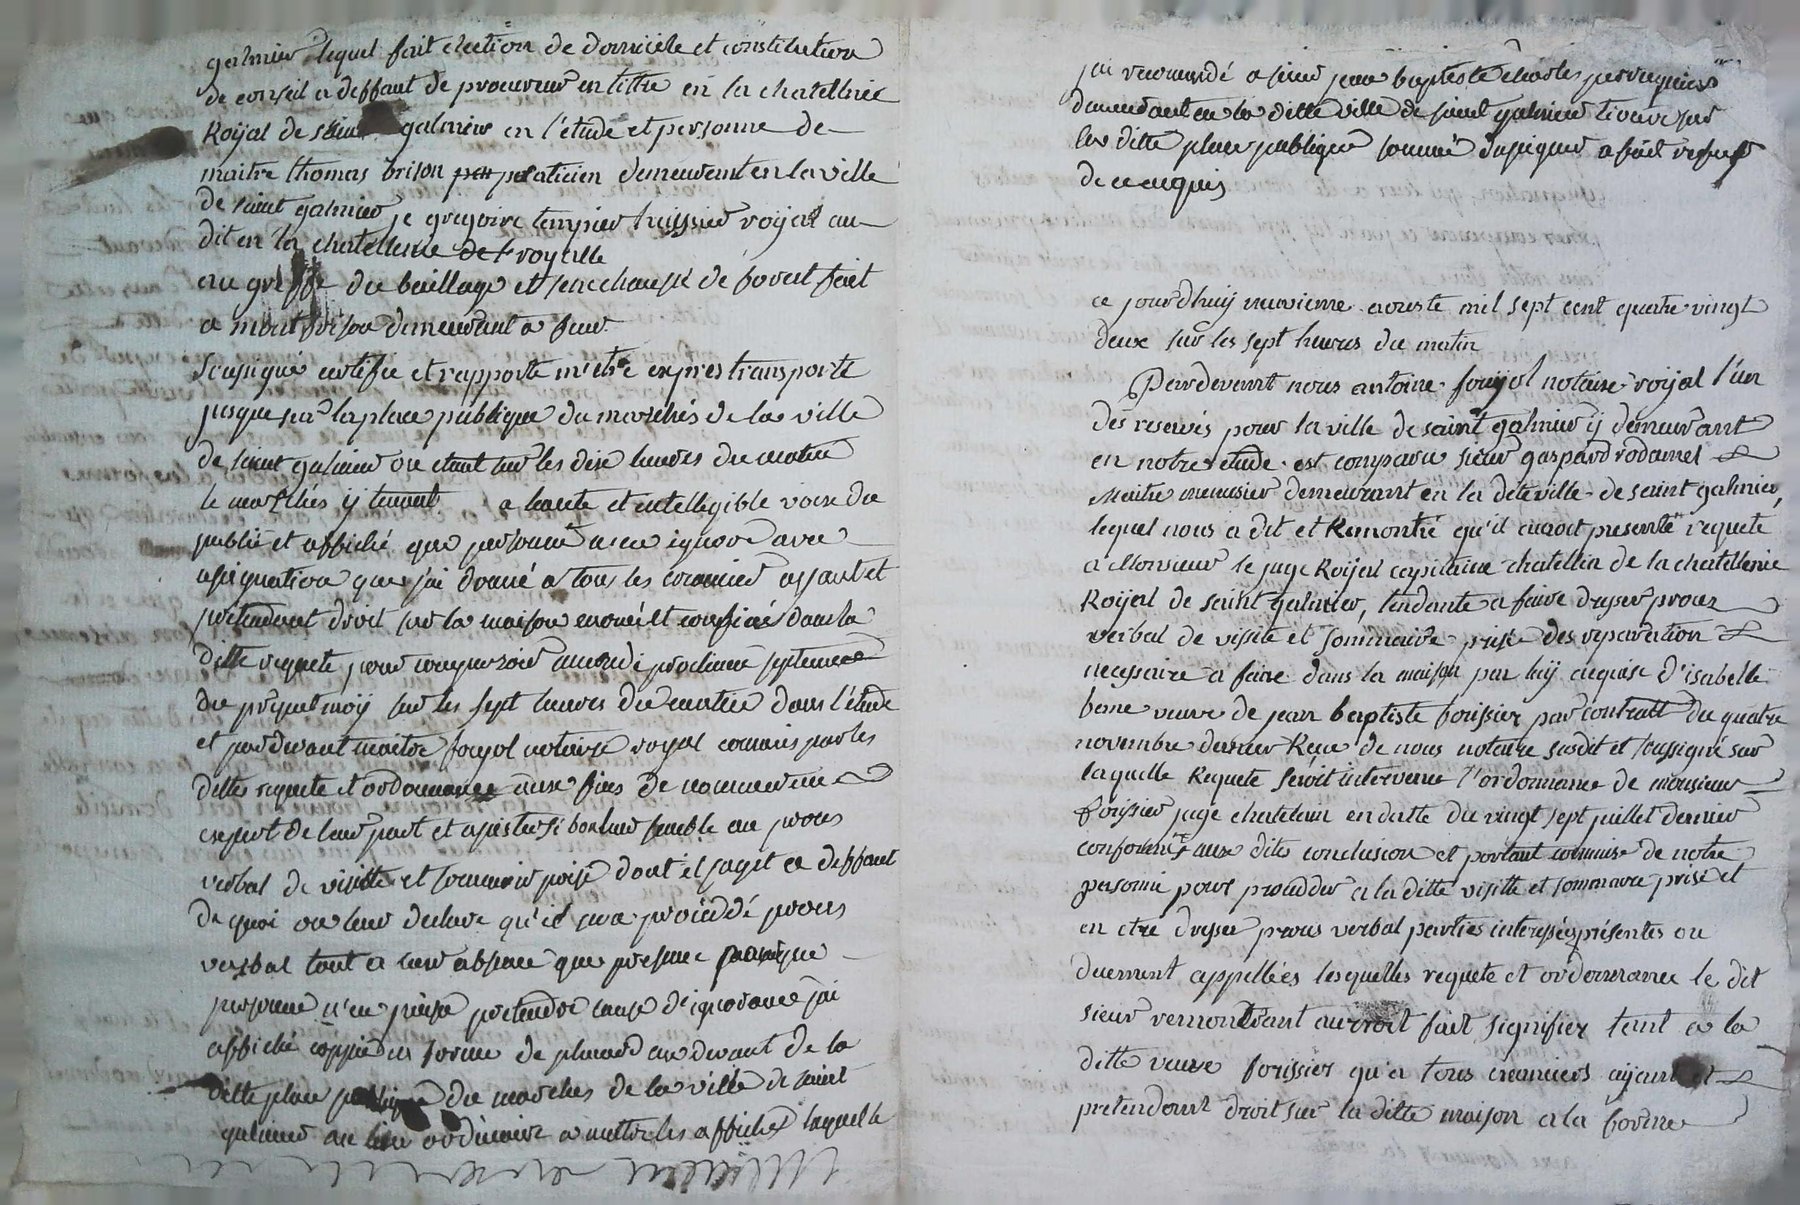 galmier lequel fait election de domicile et constitution
de conseil a deffaut de procureur en tittre en la chatellnie
Roijal de saint galmier en l'étude et personne de
maitre thomas brison praticien demeurant en la ville
de saint galmier je gregoire tempier huissier royal au
dit en la chatellenie de royalle
au greffe du baillage et senechaussé de forest fait
a montbrison demeurant a
sousigné certifie et rapporte m'etre expres transporté
jusque sur la place publique du marchés de la ville
de saint galmier ou etant sur les dix heures du matin
le marchés ij tenant a haute et intellegible voix du
publié et affiché que personne n'en ignore avec
asignation que j'ai donné a tous les creancier ayant et
pretendant droit sur la maison enoncé et confiné dans la
ditte requete pour comparoir mercredi prochain
du presant moij sur les sept heures du matin dans l'étude
et pardevant maitre foujol notaire royal commis par les
dittes requete et ordonnance aux fins de nommer un
expert de leur part et asister si bon leur semble au proces
verbal de visitte et sommaire prise dont il sagit a deffaut
de quoi on leur declare qu'il sera procédé proces
verbal tout a leur absence que presence
personne n'en puisse pretendre cause d'ignorance j'ai
affiché coppie en forme de placard au devant de la
ditte place publique du marches de la ville de saint
galmier au lieu ordinaire a mettre les affiches laquelle
j'ai recomandé a sieur jean baptiste charles perruquier
demeurant en la ditte ville de saint galmier trouve sur
la ditte place publique sommé de signer a fait refus
de ce enquis
ce jourdhuij neuvieme aouste mil sept cent quatre vingt
deux sur les sept heures du matin
Pardevant nous antoine foujol notaire roijal l'un
des reservés pour la ville de saint galmier ij demeurant
en notre etude est comparu sieur gaspard rodamel
Maitre menusier demeurant en la dite ville de saint galmier,
lequel nous a dit et Remontré qu'il auroit presenté requete
a Monsieur le juge Roijal capitaine chatellin de la chatellenie
Roijal de saint galmier, tendante a faire dresser proces
verbal de visite et sommaire prise des reparation
necessaire a faire dans la maison par luij acquise d'isabelle
bene veuve de jean baptiste forissier par contratt du quatre
novembre dernier Reçu de nous notaire susdit et soussigné sur
laquelle Requete seroit intervenue l'ordonnance de monsieur
forissier juge chatelain en datte du vingt sept juillet dernier
conformé aux dites conclusion et portant commise de notre
personne pour proceder a la ditte visitte et sommaire prise et
en etre dresse proces verbal parties interessées présentes ou
duement appellées lesquelles requete et ordonnance le dit
sieur remontrant auroit fait signifier tant a la
ditte veuve forissier qu'a tous creanciers aijant et
pretendant droit sur la ditte maison a la forme